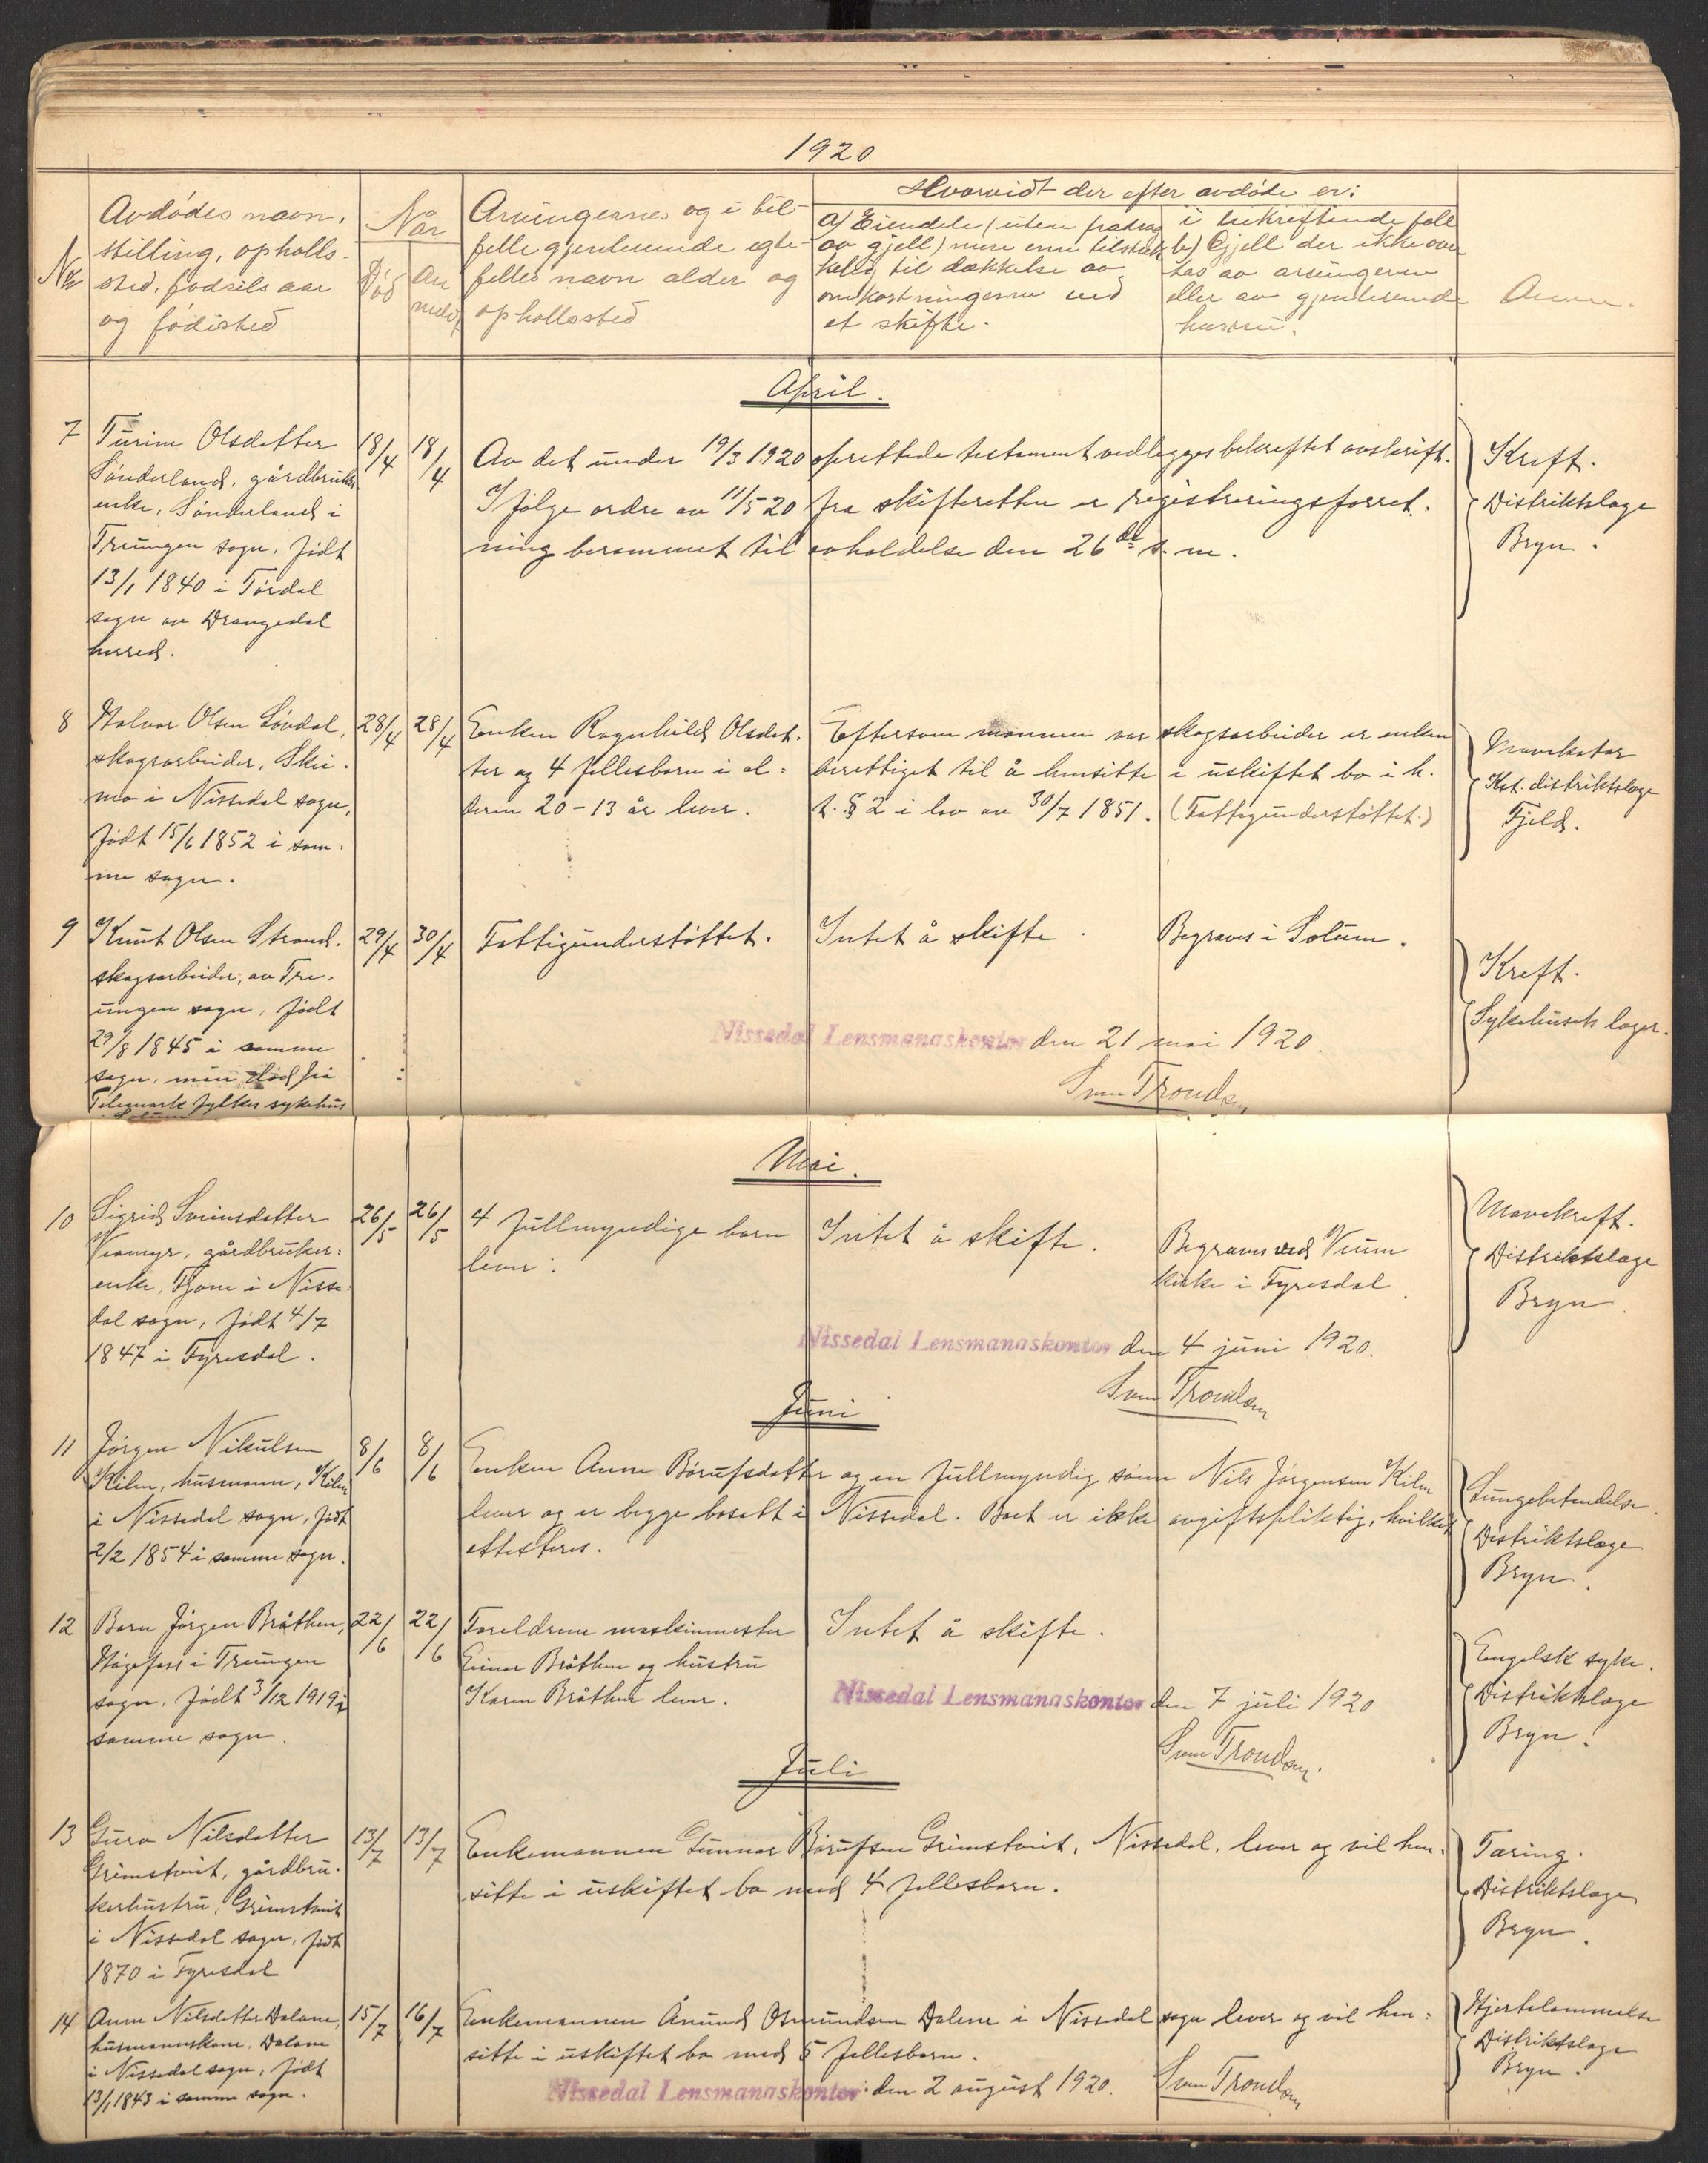 1920
Nr
Avdödes navn,
stilling, opholls-
sted, fødsels aar
og födested
Når
Død
An
meld,
Arvingernes og i til-
felle gjenlevende egte-
felles navn alder og
opholdssted
Hvorvidt der efter avdöde er:
a) Eiendele (uten fradrag
av gjell) mere enn tilstrek
kelig til dækkelse av
omkostningerne ved
et skifte.
i bekreftende fall
b) Gjell der ikke over
tas av arvingerne
eller av gjenlevende
Anm.
April.
7
Turine Olsdatter
Sønderland, gårdbruker
enke, Sønderland i
Treungen sogn, født
13/1 1840 i Tördal
sogn av Drangedal
herred.
18/4
18/4
Av det under 19/3 1920 oprettede testament vedlegges bekreftet avskrift.
Ifölge ordre av 11/5 20 fra skifteretten er registreringsforret.
ning berammet til avholdelse den 26de s. m.
Kreft.
Distriktslæge
Bryn.
8
Halvor Olsen Lövdal,
skogsarbeider, Skei.
mo i Nissedal sogn,
født 15/6 1852 i sam.
me sogn.
28/4
28/4
Enken Ragnhild Olsdat.
ter og 4 fellesbarn i al=
deren 20-13 år lever.
Eftersom mannen var skogsarbeider er enken
berettiget til å hensitte i uskiftet bo i h.
t. § 2 i lov av 30/7 1851. (Fattigunderstöttet.)
Mavekatar
Kst. distriktslæge
Fjeld.
9
Knut Olsen Strand.
skogsarbeider, av Tre.
ungen sogn, født
29/8 1845 i samme
sogn, men död på
Telemark fylkes sykehus
Solum
29/4
30/4
Fattigunderstöttet.
Intet å skifte.
Begraves i Solum.
Kreft.
Sykehusets læger.
Nissedal Lensmanaskontor den 21 mai 1920.
Sven Trondsen
Mai.
10
Sigrid Sveinsdatter
Veamyr, gårdbruker=
enke, Tjone i Nisse=
dal sogn, født 4/7
1847 i Fyresdal.
26/5
26/5
4 fullmyndige barn
lever.
Intet å skifte.
Begraves ved Veum
kirke i Fyresdal.
Mavekreft.
Distriktslæge
Bryn.
Nissedal Lensmanaskontor den 4 juni 1920.
Sven Trondsen
Juni
11
Jörgen Nikulsen
Kilen, husmann, Kilen
i Nissedal sogn, født
2/2 1854 i samme sogn.
8/6
8/6
Enken Anne Börufsdatter og en fullmyndig sönn Nils Jörgensen Kilen
lever og er begge bosatt i Nissedal. Boet er ikke avgiftspliktig, hvilket
attesteres.
Lungebetendelse.
Distriktslæge
Bryn.
12
Barn Jörgen Bråthen,
Högefoss i Treungen
sogn, født 3/12 1919 i
samme sogn.
22/6
22/6
Foreldrene maskinmester
Einar Bråthen og hustru
Karen Bråthen lever.
Intet å skifte.
Engelsk syke.
Distriktslæge
Bryn.
Nissedal Lensmanaskontor den 7 juli 1920
Sven Trondsen.
Juli
13
Guro Nilsdatter
Grimstvit, gårdbru.
kerhustru, Grimstvit
i Nissedal sogn, født
1870 i Fyresdal
13/7
13/7
Enkemannen Gunnar Börufsen Grimstvit, Nissedal, lever og vil hen.
sitte i uskiftet bo med 4 fellesbarn.
Tæring.
Distriktslæge
Bryn.
14
Anne Nilsdatter Dalane,
husmannskone, Dalane
i Nissedal sogn, født
13/1 1843 i samme sogn.
15/7
16/7
Enkemannen Ånund Osmundsen Dalene i Nissedal sogn lever og vil hen=
sitte i uskiftet bo med 5 fellesbarn.
Hjertelammelse
Distriktslæge
Bryn.
Nissedal Lensmanaskontor den 2 august 1920.
Sven Trondsen